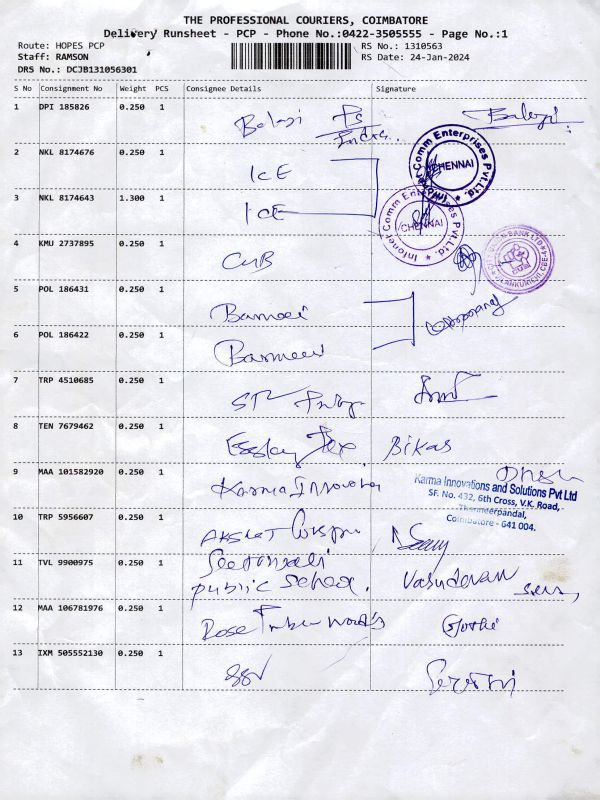 THE PROFESSIONAL COURIERS, COIMBATORE
Delivery Runsheet - PCP - Phone No.:0422-3505555 - Page No.:1
Route: HOPES PCP
Staff: RAMSON
DRS No.: DCJB131056301
RS No.: 1310563
RS Date: 24-Jan-2024
S No Consignment No Weight PCS Consignee Details Signature
1 DPI 185826 0.250 1 Balaji
2 NKL 8174676 0.250 1 ICE
3 NKL 8174643 1.300 1 ICE
Infonet Comm Enterprises Pvt.Ltd. * CHENNAI
Infonet Comm Enterprises Pvt.Ltd. * CHENNAI
4 KMU 2737895 0.250 1 CUB
5 POL 186431 0.250 1
6 POL 186422 0.250 1
7 TRP 4510685 0.250 1
8 TEN 7679462 0.250 1 Bikas
9 MAA 101582920 0.250 1 Karma Innovation
Karma Innovations and Solutions Pvt Ltd
SF. No. 432, 6th Cross, V.K. Road,
Thanneerpandal,
Coimbatore - 641 004.
10 TRP 5956607 0.250 1
11 TVL 9900975 0.250 1
public School. Vasudevan
12 MAA 106781976 0.250 1 Rose Timber Works
13 IXM 505552130 0.250 1